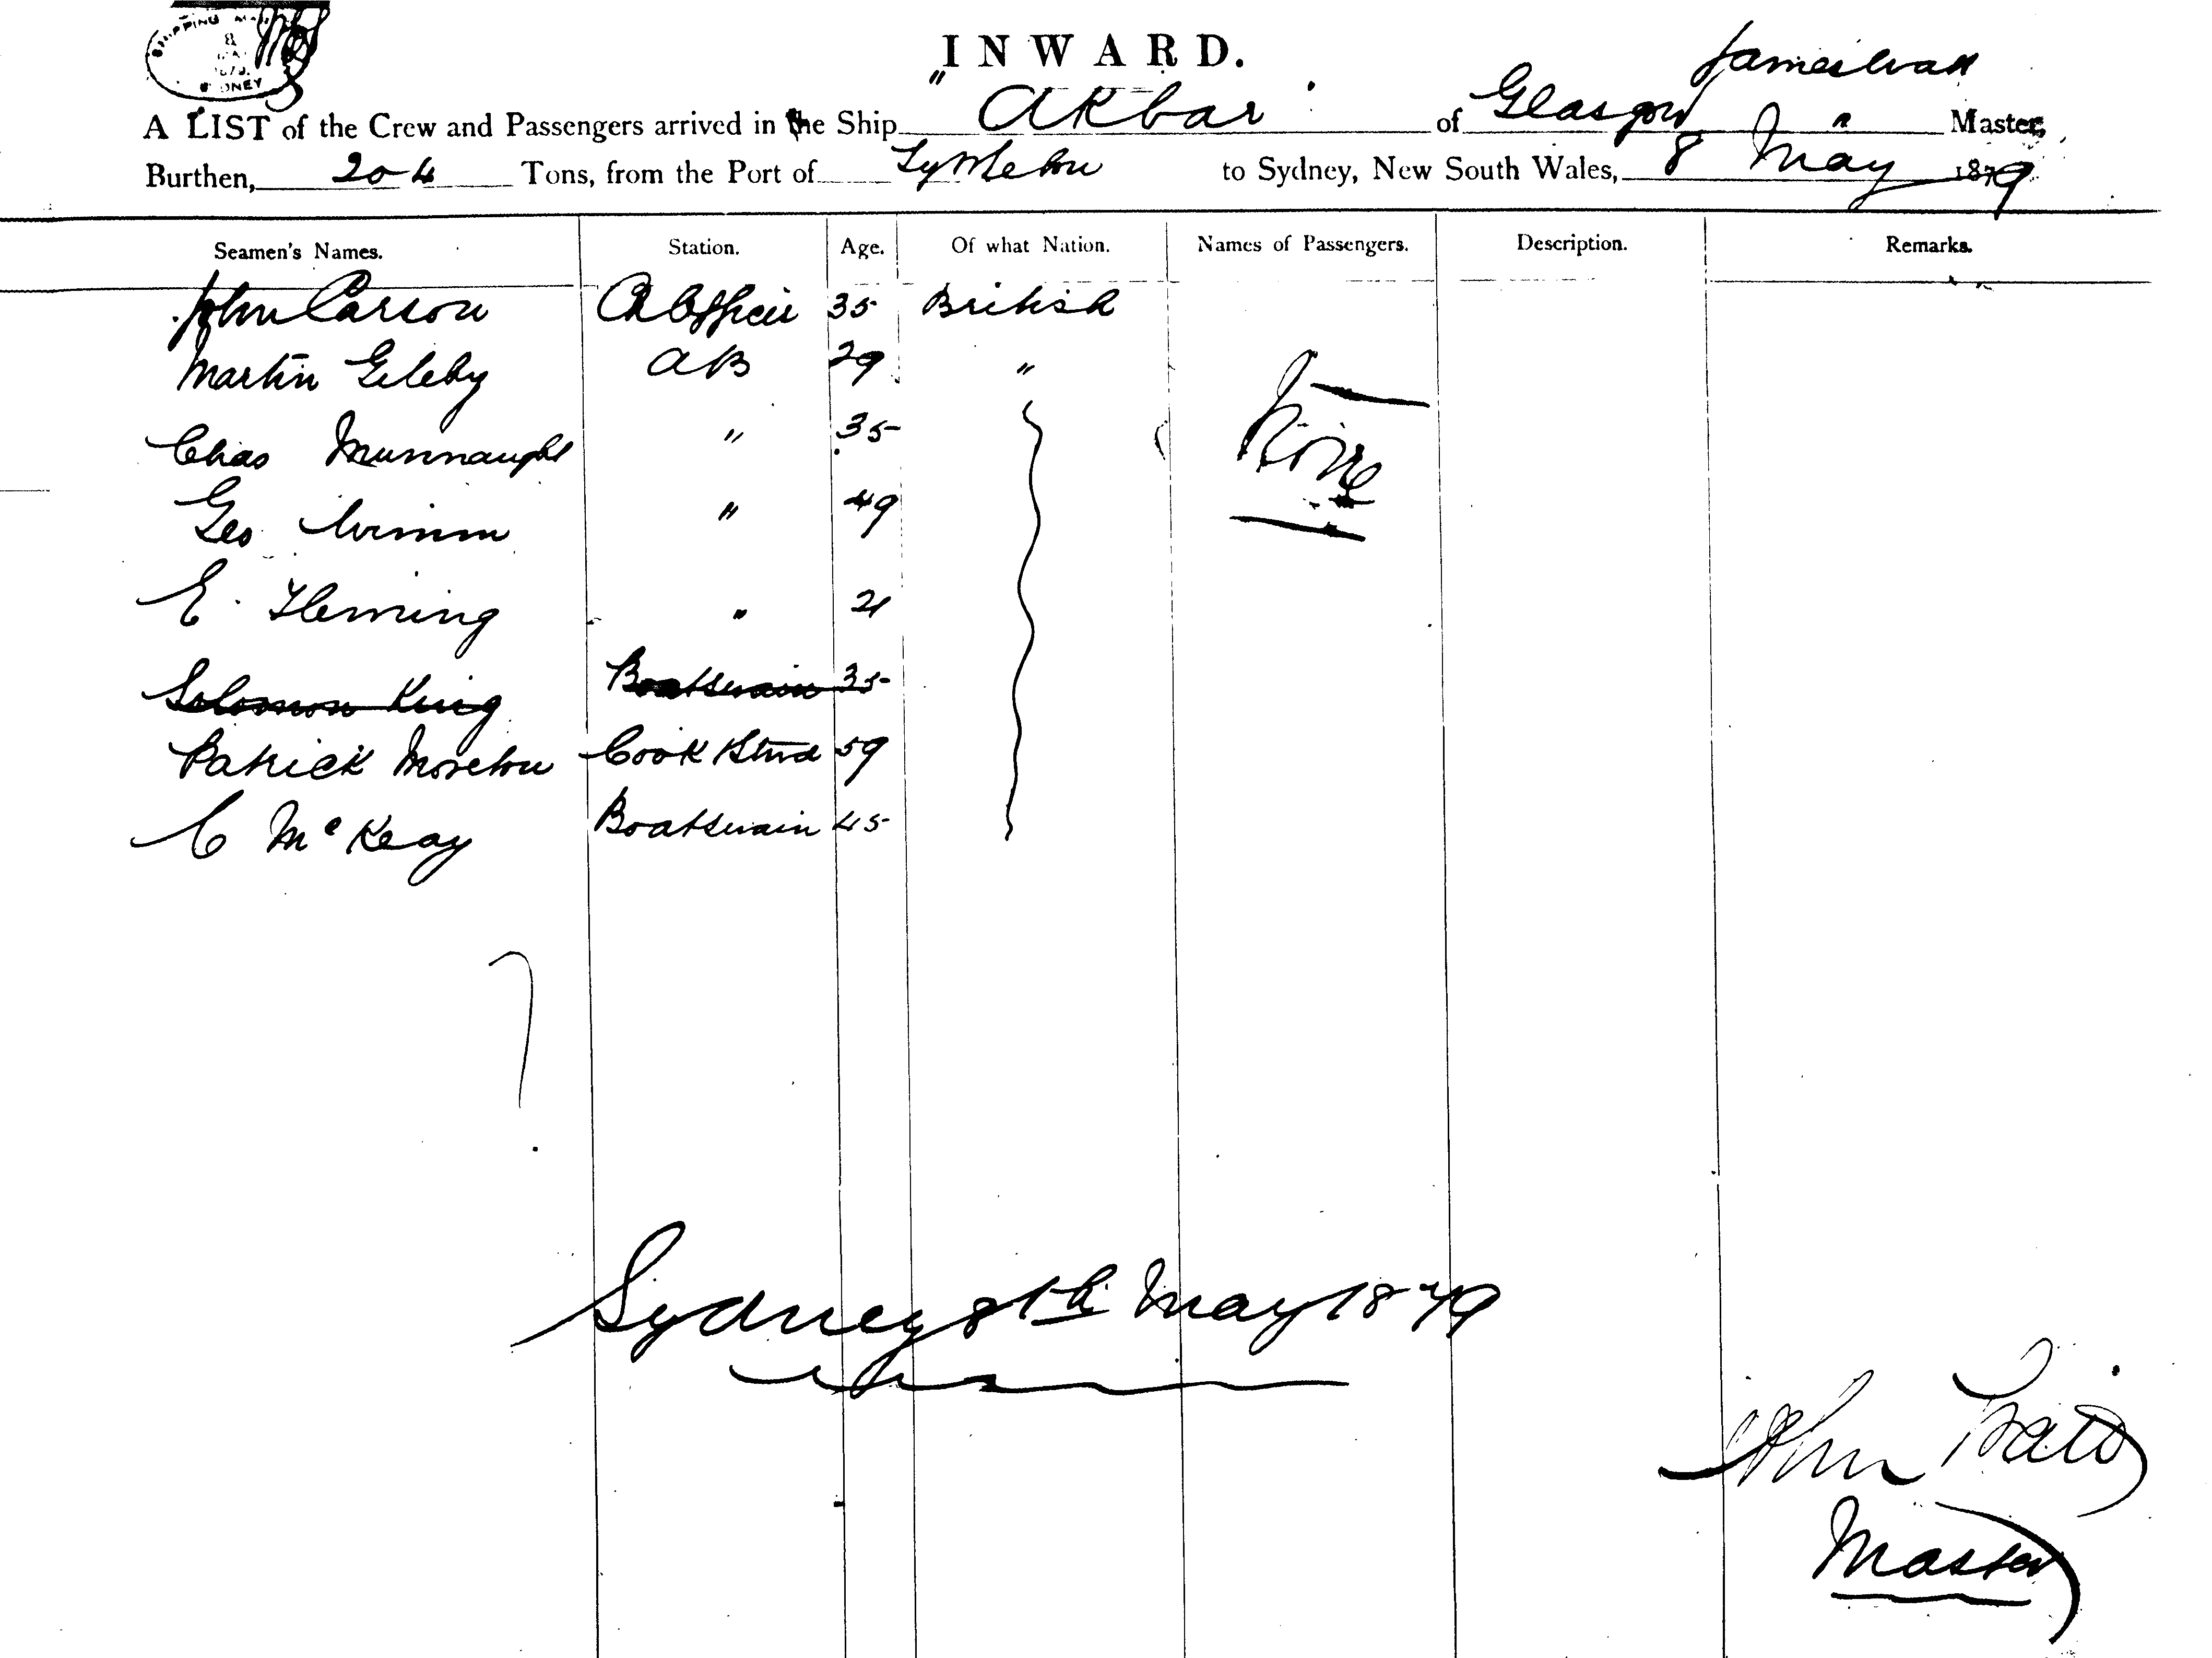 SHIPPING MA
8
SYDNEY
INWARD.
A LIST of the Crew and Passengers arrived in the Ship "Akbar" of Glasgow James Master,
Burthen, 204 Tons, from the Port of Lyttleton to Sydney, New South Wales, 8 May 1879
Seamen's Names. Station. Age. Of what Nation. Names of Passengers. Description. Remarks.
John Carson Ch Officer 35 British
Martin 29 AB "
Chas " 35
None
Geo " 49
E. Fleming " 21
Solomon King Boatswain 35
Patrick Moreton Cook & Stwd 59
C McKeay Boatswain 45
Sydney 8th May 1879
John
Master